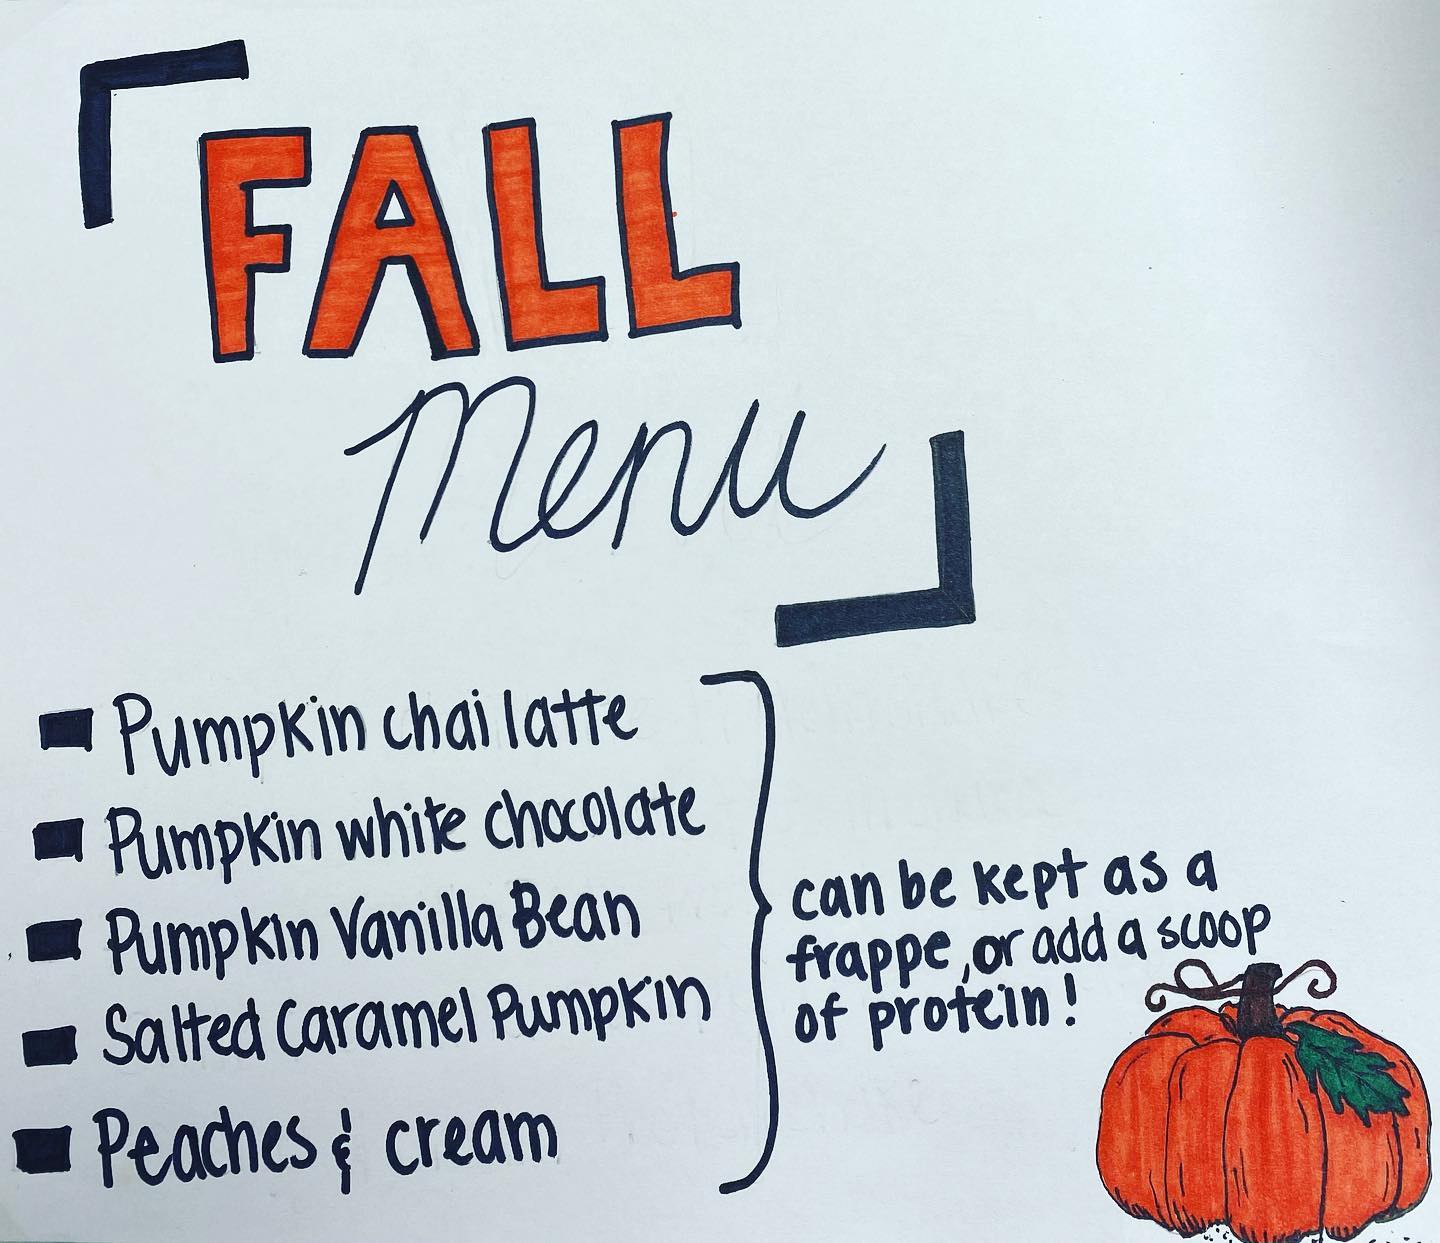 FALL
Menu
Pumpkin chai latte
Pumpkin white chocolate
Pumpkin Vanilla Bean
Salted Caramel Pumpkin
Peaches & cream
can be kept as a
frappe, or add a scoop
of protein!